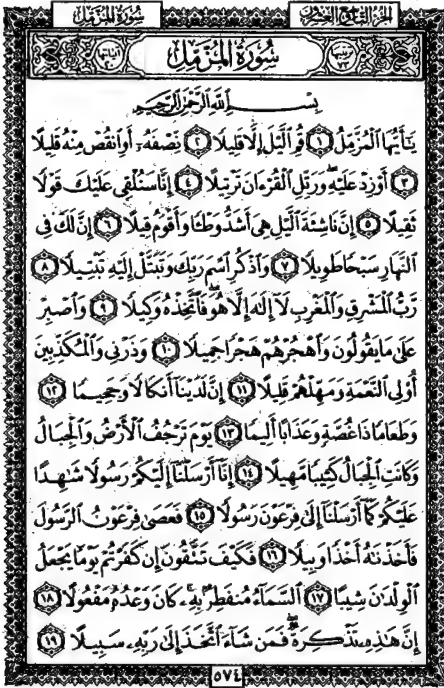 الجزء التاسع والعشرون سُورَةُ المُزَّمِّل
سُورَةُ المُزَّمِّل
بِسْمِ ٱللَّهِ ٱلرَّحْمَٰنِ ٱلرَّحِيمِ
يَٰٓأَيُّهَا ٱلْمُزَّمِّلُ ١ قُمِ ٱلَّيْلَ إِلَّا قَلِيلًا ٢ نِّصْفَهُۥٓ أَوِ ٱنقُصْ مِنْهُ قَلِيلًا
٣ أَوْ زِدْ عَلَيْهِ وَرَتِّلِ ٱلْقُرْءَانَ تَرْتِيلًا ٤ إِنَّا سَنُلْقِى عَلَيْكَ قَوْلًا
ثَقِيلًا ٥ إِنَّ نَاشِئَةَ ٱلَّيْلِ هِىَ أَشَدُّ وَطْـًٔا وَأَقْوَمُ قِيلًا ٦ إِنَّ لَكَ فِى
ٱلنَّهَارِ سَبْحًا طَوِيلًا ٧ وَٱذْكُرِ ٱسْمَ رَبِّكَ وَتَبَتَّلْ إِلَيْهِ تَبْتِيلًا ٨
رَّبُّ ٱلْمَشْرِقِ وَٱلْمَغْرِبِ لَآ إِلَٰهَ إِلَّا هُوَ فَٱتَّخِذْهُ وَكِيلًا ٩ وَٱصْبِرْ
عَلَىٰ مَا يَقُولُونَ وَٱهْجُرْهُمْ هَجْرًا جَمِيلًا ١٠ وَذَرْنِى وَٱلْمُكَذِّبِينَ
أُو۟لِى ٱلنَّعْمَةِ وَمَهِّلْهُمْ قَلِيلًا ١١ إِنَّ لَدَيْنَآ أَنكَالًا وَجَحِيمًا ١٢
وَطَعَامًا ذَا غُصَّةٍ وَعَذَابًا أَلِيمًا ١٣ يَوْمَ تَرْجُفُ ٱلْأَرْضُ وَٱلْجِبَالُ
وَكَانَتِ ٱلْجِبَالُ كَثِيبًا مَّهِيلًا ١٤ إِنَّآ أَرْسَلْنَآ إِلَيْكُمْ رَسُولًا شَٰهِدًا
عَلَيْكُمْ كَمَآ أَرْسَلْنَآ إِلَىٰ فِرْعَوْنَ رَسُولًا ١٥ فَعَصَىٰ فِرْعَوْنُ ٱلرَّسُولَ
فَأَخَذْنَٰهُ أَخْذًا وَبِيلًا ١٦ فَكَيْفَ تَتَّقُونَ إِن كَفَرْتُمْ يَوْمًا يَجْعَلُ
ٱلْوِلْدَٰنَ شِيبًا ١٧ ٱلسَّمَآءُ مُنفَطِرٌۢ بِهِۦ كَانَ وَعْدُهُۥ مَفْعُولًا ١٨
إِنَّ هَٰذِهِۦ تَذْكِرَةٌ فَمَن شَآءَ ٱتَّخَذَ إِلَىٰ رَبِّهِۦ سَبِيلًا ١٩
٥٧٤